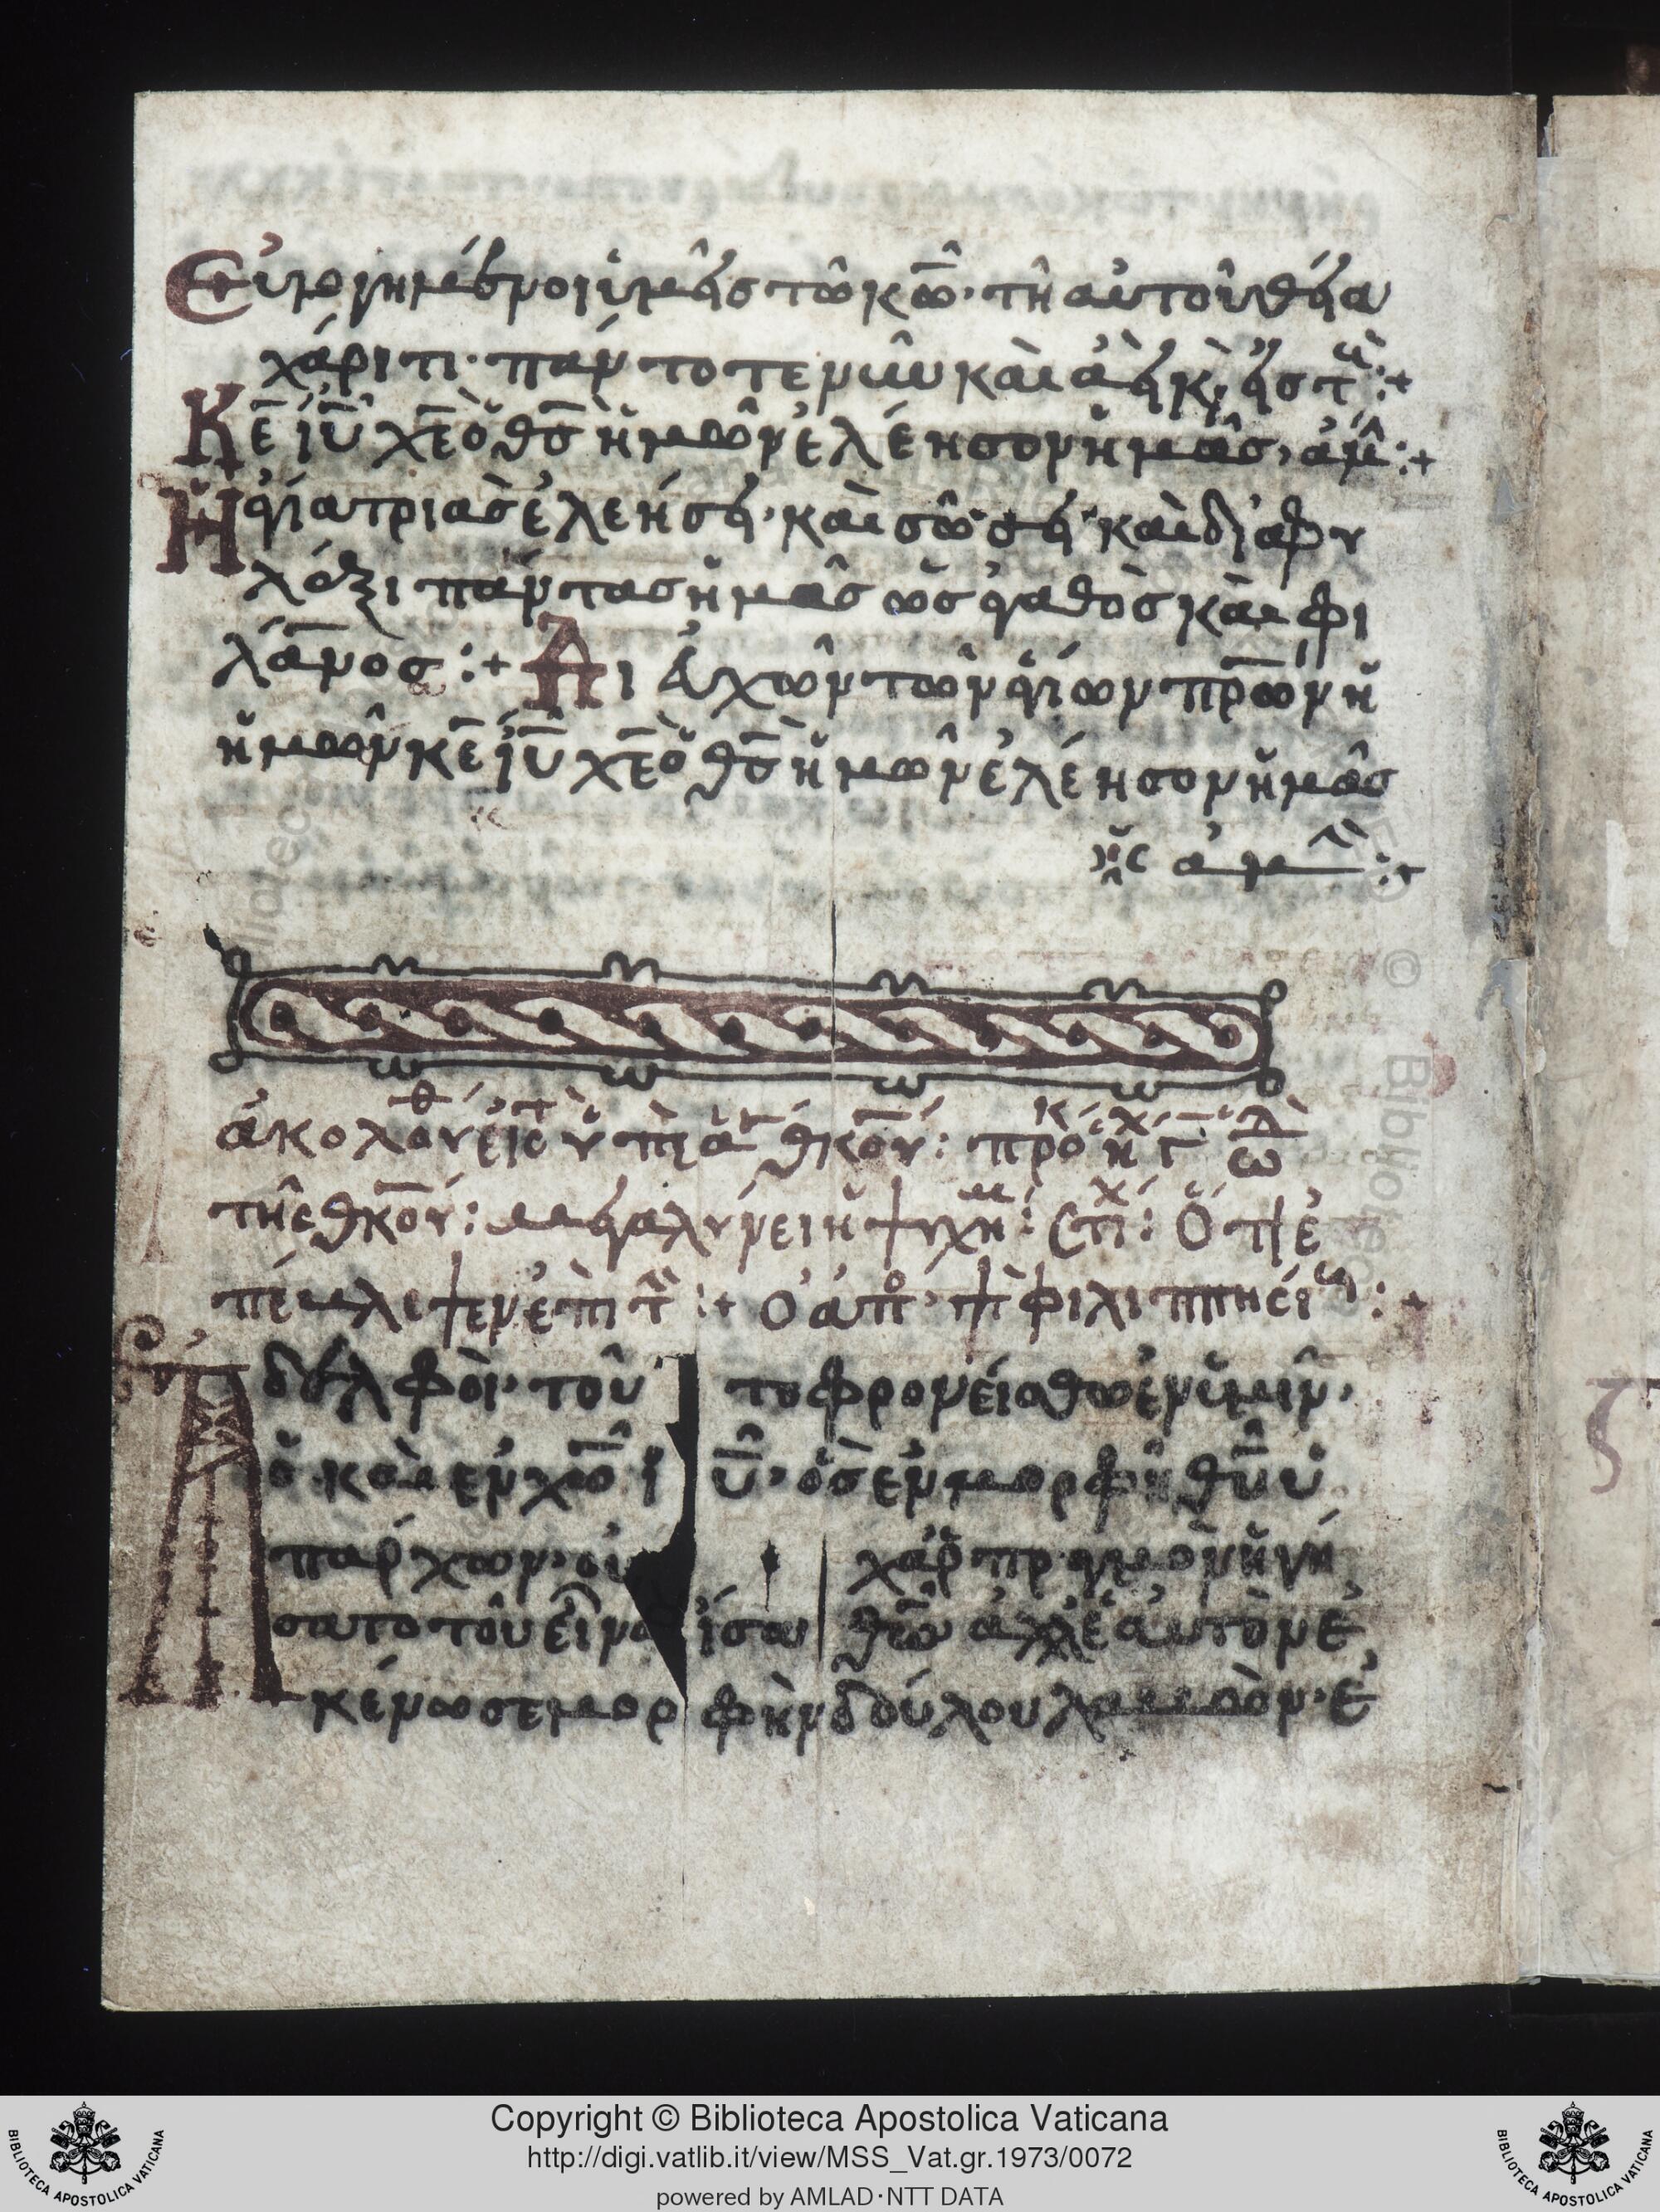 Εὐλογημένοι ὑμεῖς τῶ κῶ· τῆ αὐτοῦ θεία
χάριτι· πάντοτε νῦν καὶ ἀεὶ κ, εἰς τ :+
Κε ιυ χε ὁ θς ἡμῶν ἐλέησον ἡμᾶς, ἀμ :+
Η ἁγία τριὰς ἐλεήσει· καὶ σώσει καὶ διαφυ
λάξι πάντας ἡμᾶς ὡς ἀγαθὸς καὶ φι
λάνος :+ Δι εὐχῶν τῶν ἁγίων πρων ἡ
ἡμῶν κε ιυ χε ὁ θς ἡμῶν ἐλέησον ἡμᾶς
ἀμ :+
τῆς θκου: μεγαλύνει ἡ ψυχή μ: Στι χ: Ὅτι ἐ
πέβλεψεν ἐπὶ τ :+ Ὁ ἀπο πρ φιλιππησί
Ἀδελφοὶ· τοῦτο φρονείσθω ἐν ὑμῖν·
ὃ καὶ ἐν χω ιυ· ὃς ἐν μορφῆ θυ ὑ
πάρχων· οὐχ ἁρπαγμὸν ἡγή
σατο τοῦ εἶναι ἴσα θω ἀλλ' ἑαυτὸν ἐ
κένωσε μορφὴν δούλου λαβὼν· ἐ
Copyright © Biblioteca Apostolica Vaticana
http://digi.vatlib.it/view/MSS_Vat.gr.1973/0072
powered by AMLAD·NTT DATA
BIBLIOTECA APOSTOLICA VATICANA
BIBLIOTECA APOSTOLICA VATICANA